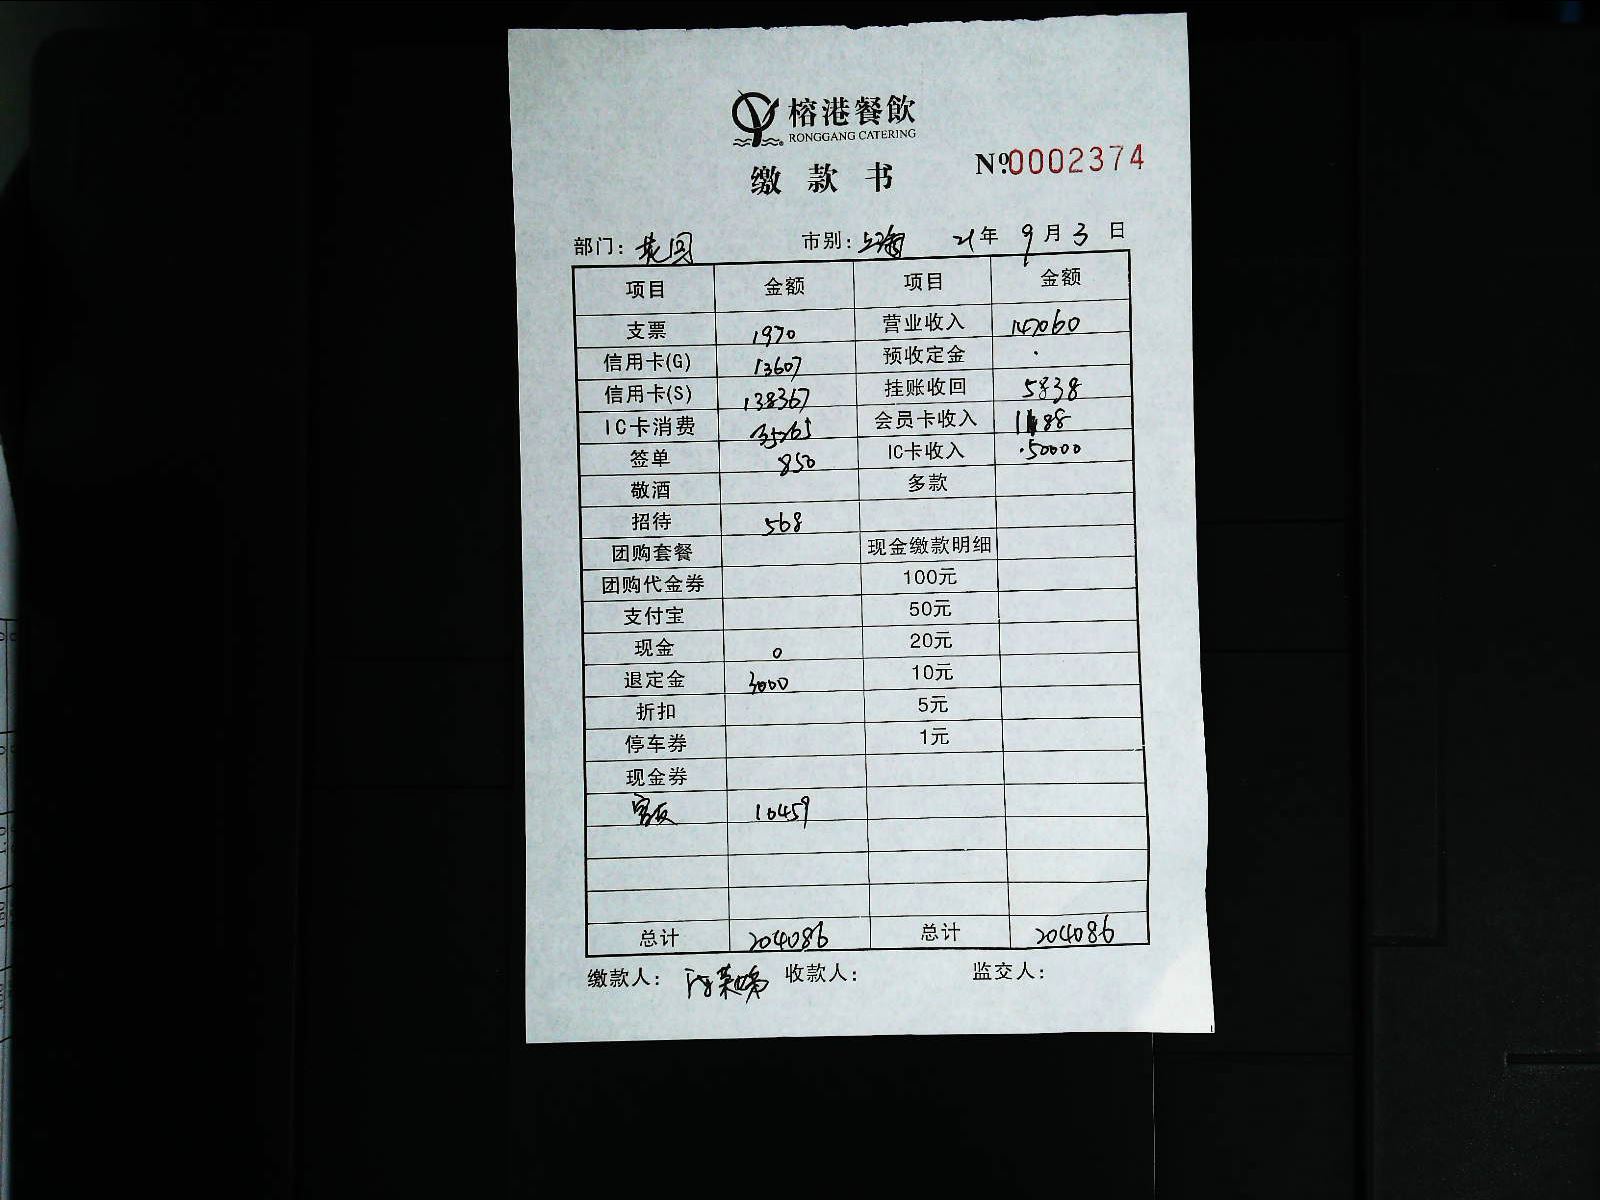 榕港餐飲
RONGGANG CATERING
缴款书 Nº0002374
部门: 市别:上海 21年9月3日
项目 金额 项目 金额
支票 1970 营业收入 147060
信用卡(G) 13607 预收定金
信用卡(S) 138367 挂账收回 5838
IC卡消费 35265 会员卡收入 1188
签单 850 IC卡收入 50000
敬酒 多款
招待 568
团购套餐 现金缴款明细
团购代金券 100元
支付宝 50元
现金 0 20元
退定金 3000 10元
折扣 5元
停车券 1元
现金券
10459
总计 204086 总计 204086
缴款人: 收款人: 监交人: